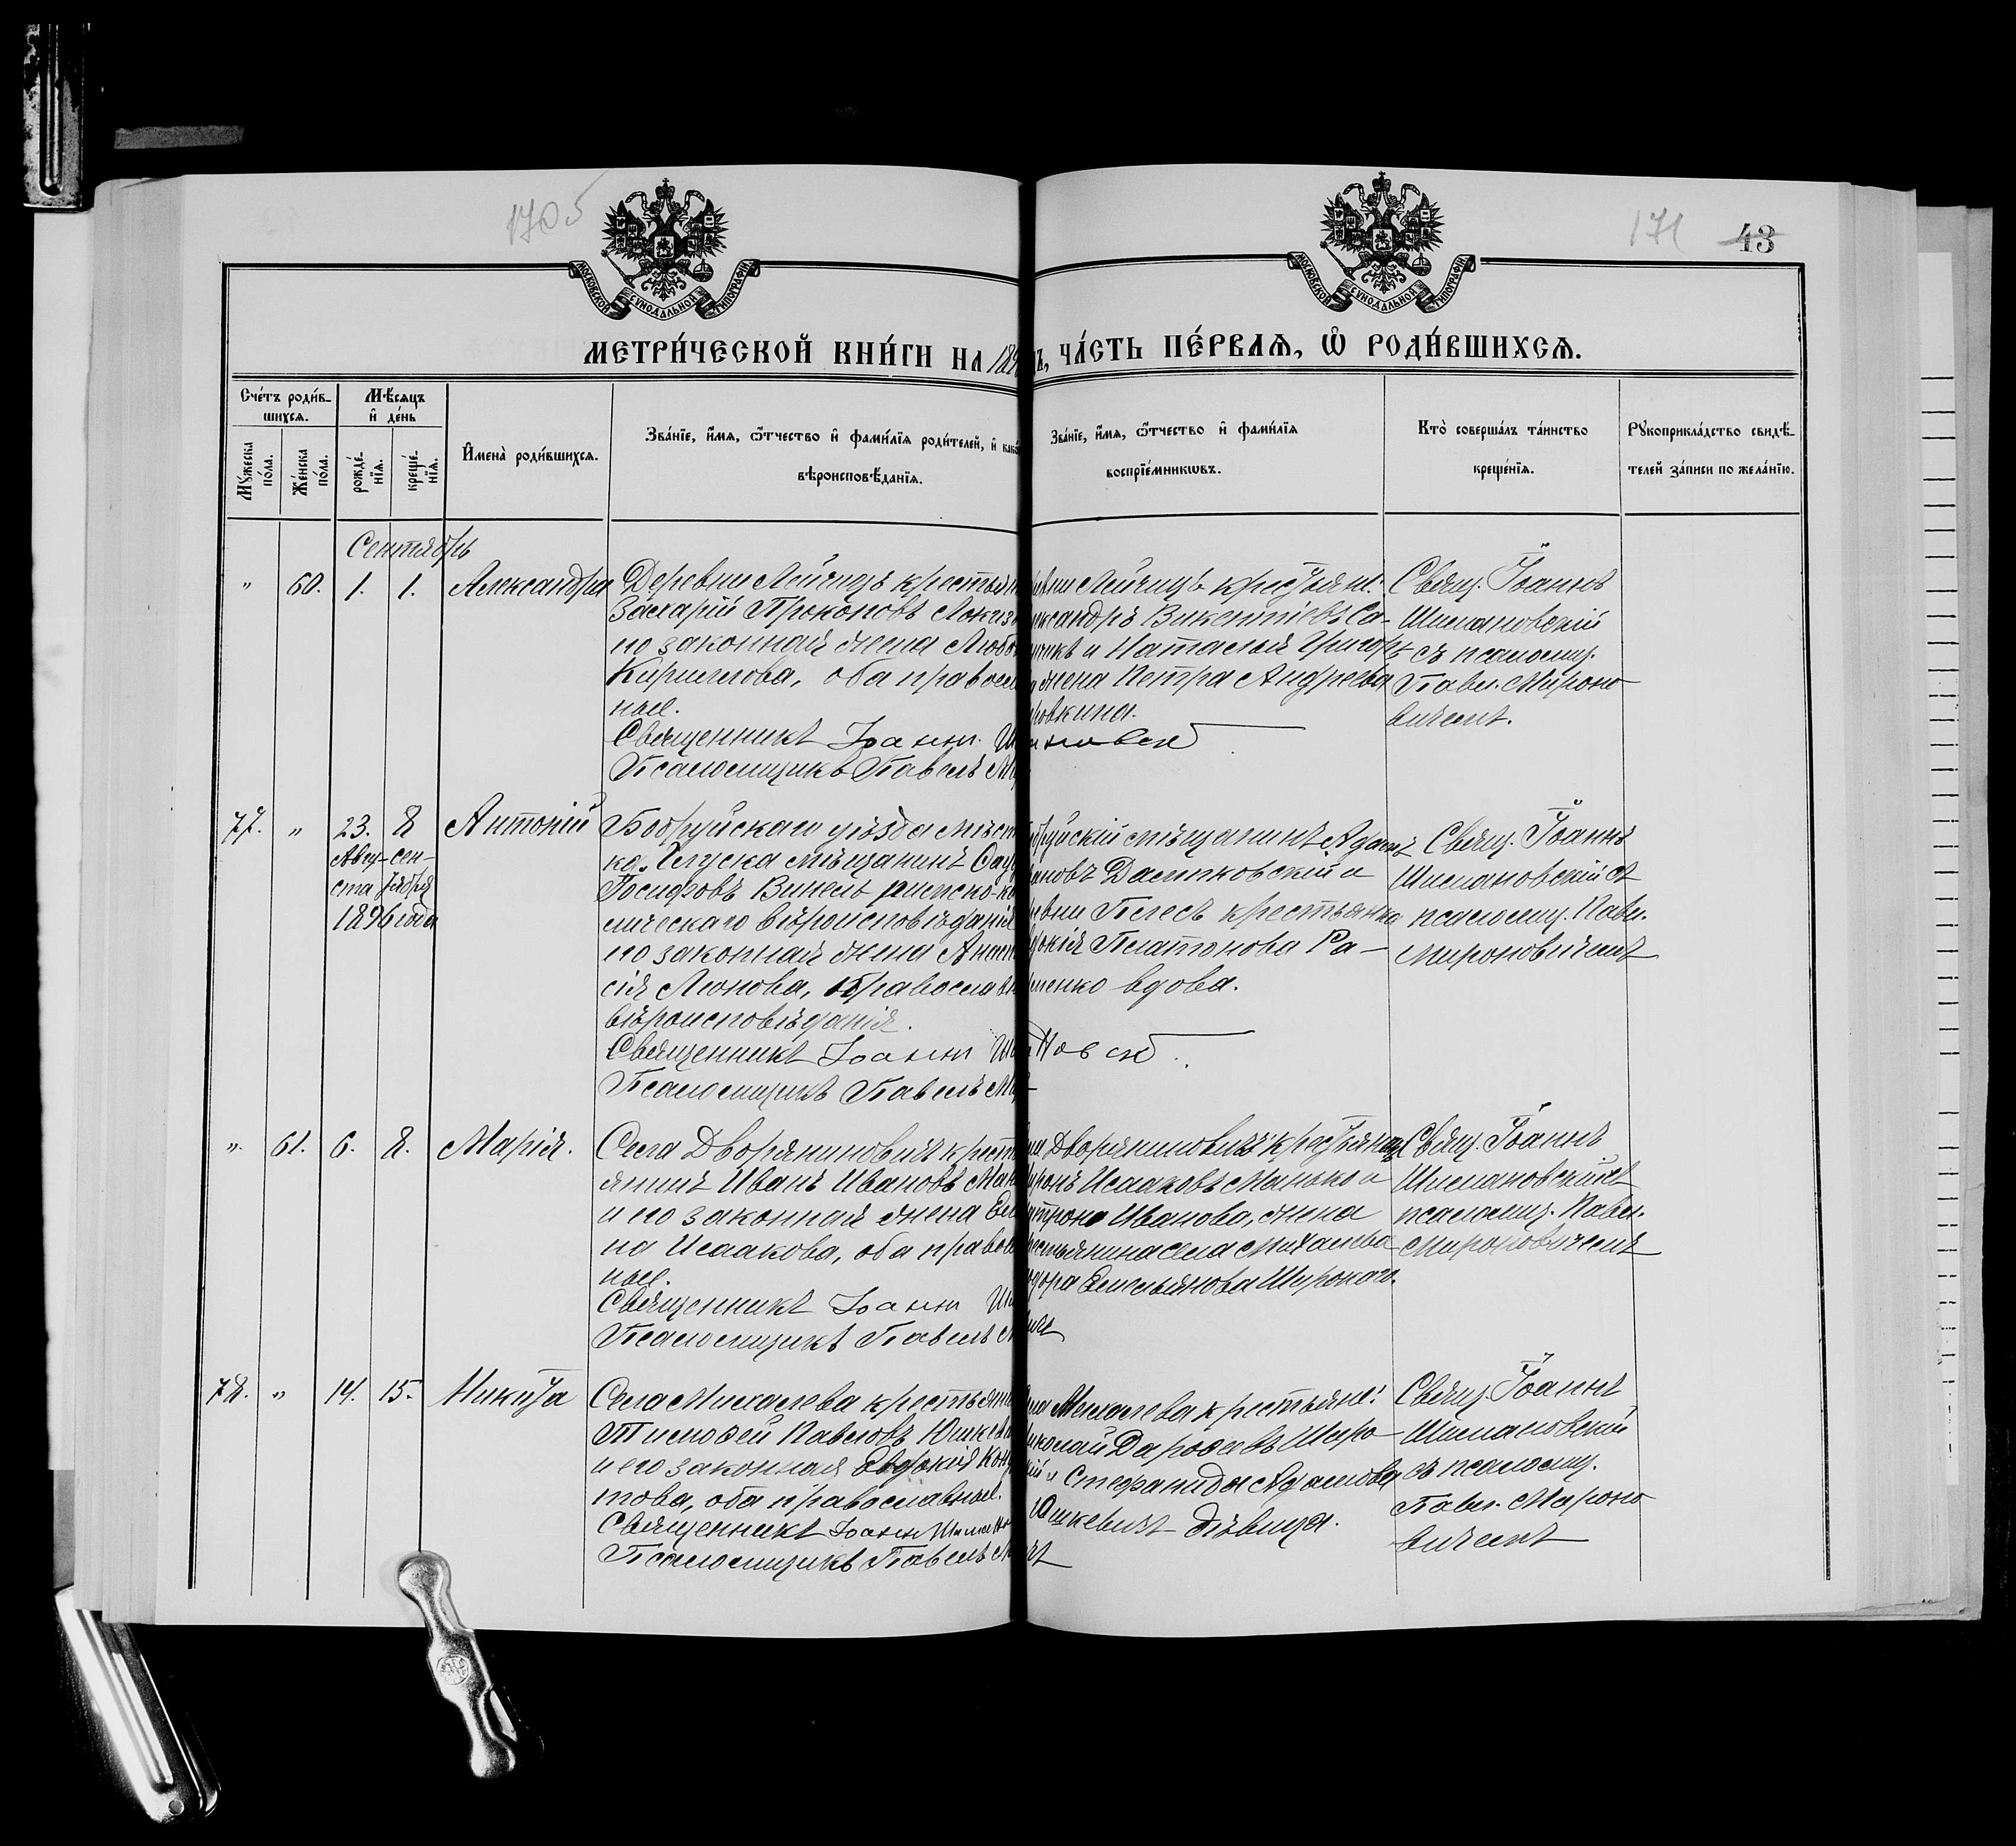 170об
171 43
МОСКОВСКОЙ СѴНОДАЛЬНОЙ ТИПОГРАФІИ
МОСКОВСКОЙ СѴНОДАЛЬНОЙ ТИПОГРАФІИ
МЕТРИ́ЧЕСКОЙ КНИ́ГИ НА 189
ЧА́СТЬ ПЕ́РВАЯ, Ѡ҆ РОДИ́ВШИХСЯ.
Сче́тъ роди́в-
шихся.
Мꙋ́жеска по́ла.
Же́нска по́ла.
Мѣ́сяцъ
и҆ де́нь
рожде́-
нїя.
креще́-
нїя.
И҆мена̀ роди́вшихся.
Зва́нїе, и҆́мя, ѻ҆́тчество и҆ фами́лїя роди́телей, и҆ како
вѣроисповѣ́данїя.
Зва́нїе, и҆́мя, ѻ҆́тчество и҆ фами́лїя
воспрїе́мникωвъ.
Кто̀ соверша́лъ та́инство
креще́нїя.
Рꙋкоприкла́дство свидѣ́-
телей за́писи по жела́нїю.
Сентябрь
" 60. 1. 1. Александра
Деревни Лейчицъ крестьян
Захарій Прокоповъ
его законная жена Любо
Кириллова, оба правосл
ные.
Священникъ Іоанн Ши
Псаломщикъ Павелъ Ми
евни Лейчицъ крестьян:
ександръ Викентіевъ Са-
и Наталья Григорь
жена Петра Андреева
ровкина.
Свящ. Іоаннъ
Шимановскій
съ псаломщ.
Павл. Мироно
вичемъ.
77. " 23. 8 Антоній
Авгу- сен-
ста тября
1896 года
Бобруйскаго уѣзда мѣст
ка Глуска мѣщанинъ
Іосифовъ Винель римско-ка
лическаго вѣроисповѣданія
его законная жена Анаст
сія Леонова, православн
вѣроисповѣданія.
Священникъ Іоанн Ши
Псаломщикъ Павелъ Ми
бруйскій мѣщанинъ Адамъ
ановъ Далтковскій и
евни Пглесъ крестьянка
докія Платонова Ра-
ченко вдова.
Свящ. Іоаннъ
Шимановскій съ
псаломщ. Павл.
Мироновичемъ
" 61. 6. 8. Марія.
Села Дворяниновичъ крест
янинъ Иванъ Ивановъ Мань
и его законная жена Еле
на Исаакова, оба правосл
ные.
Священникъ Іоанн Ши
Псаломщикъ Павелъ М
ла Дворяниновичъ крестьянин
иронъ Исааковъ Манько и
атрона Иванова, жена
рестьянина села Михалева
одора Емельянова Широкаго.
Свящ. Іоаннъ
Шимановскій съ
псаломщ. Павл.
Мироновичемъ
78. " 14. 15. Никита
Села Михалева крестьяни
Тимофей Павловъ Юшкев
и его законная Евдокія Кон
това, оба православные.
Священникъ Іоанн Шиман
Псаломщикъ Павелъ М
ела Михалева крестьяне:
иколай Дарофеевъ Широ-
кій и Стефанида Адамова
Юшкевичъ дѣвица.
Свящ. Іоаннъ
Шимановскій
съ псаломщ.
Павл. Мироно
вичемъ